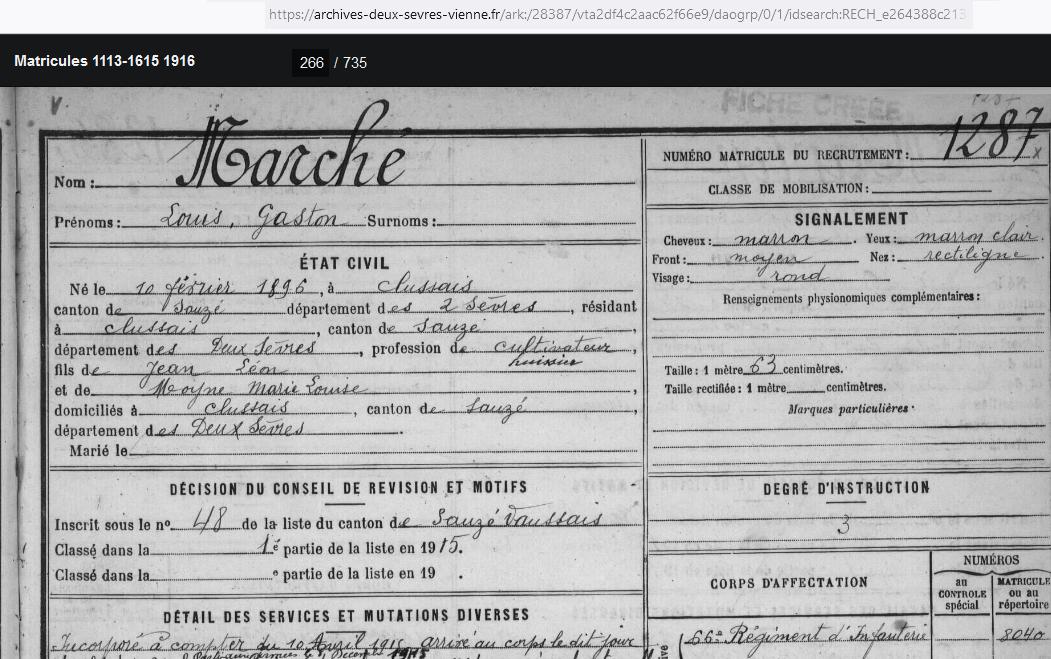 https://archives-deux-sevres-vienne.fr/ark:/28387/vta2df4c2aac62f66e9/daogrp/0/1/idsearch:RECH_e264388c213
Matricules 1113-1615 1916
266 / 735
FICHE CRÉÉE
Marché
Nom :
Prénoms : Louis, Gaston Surnoms :
ÉTAT CIVIL
Né le 10 février 1896, à Clussais
canton de Sauzé département des 2 Sèvres, résidant
à Clussais, canton de Sauzé,
département des Deux Sèvres, profession de cultivateur,
huissier
fils de Jean Léon
et de Moyne Marie Louise,
domiciliés à Clussais, canton de Sauzé,
département des Deux Sèvres.
Marié le
DÉCISION DU CONSEIL DE REVISION ET MOTIFS
Inscrit sous le n° 48 de la liste du canton de Sauzé Vaussais
Classé dans la 1e partie de la liste en 1915.
Classé dans la e partie de la liste en 19 .
DÉTAIL DES SERVICES ET MUTATIONS DIVERSES
Incorporé à compter du 10 Avril 1915 arrivé au corps le dit jour
NUMÉRO MATRICULE DU RECRUTEMENT : 1287
CLASSE DE MOBILISATION :
SIGNALEMENT
Cheveux : marron. Yeux : marron clair.
Front : moyen Nez : rectiligne
Visage : rond
Renseignements physionomiques complémentaires :
Taille : 1 mètre 63 centimètres.
Taille rectifiée : 1 mètre centimètres.
Marques particulières :
DEGRÉ D'INSTRUCTION
3
CORPS D'AFFECTATION
NUMÉROS
au CONTROLE spécial
MATRICULE ou au répertoire
66e Régiment d'Infanterie 8040